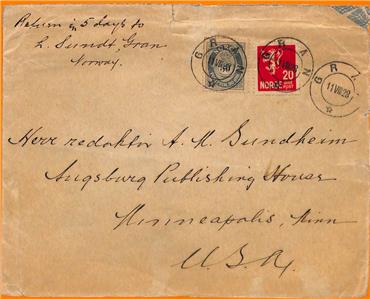 Return in 5 days to
L. Sundt, Gran
Norway.
GRAN
GRAN
20
NORGE
GRAN
11 VIII 28
Herr redaktör A. M. Sundheim
Augsburg Publishing House
Minneapolis, Minn
U.S.A.